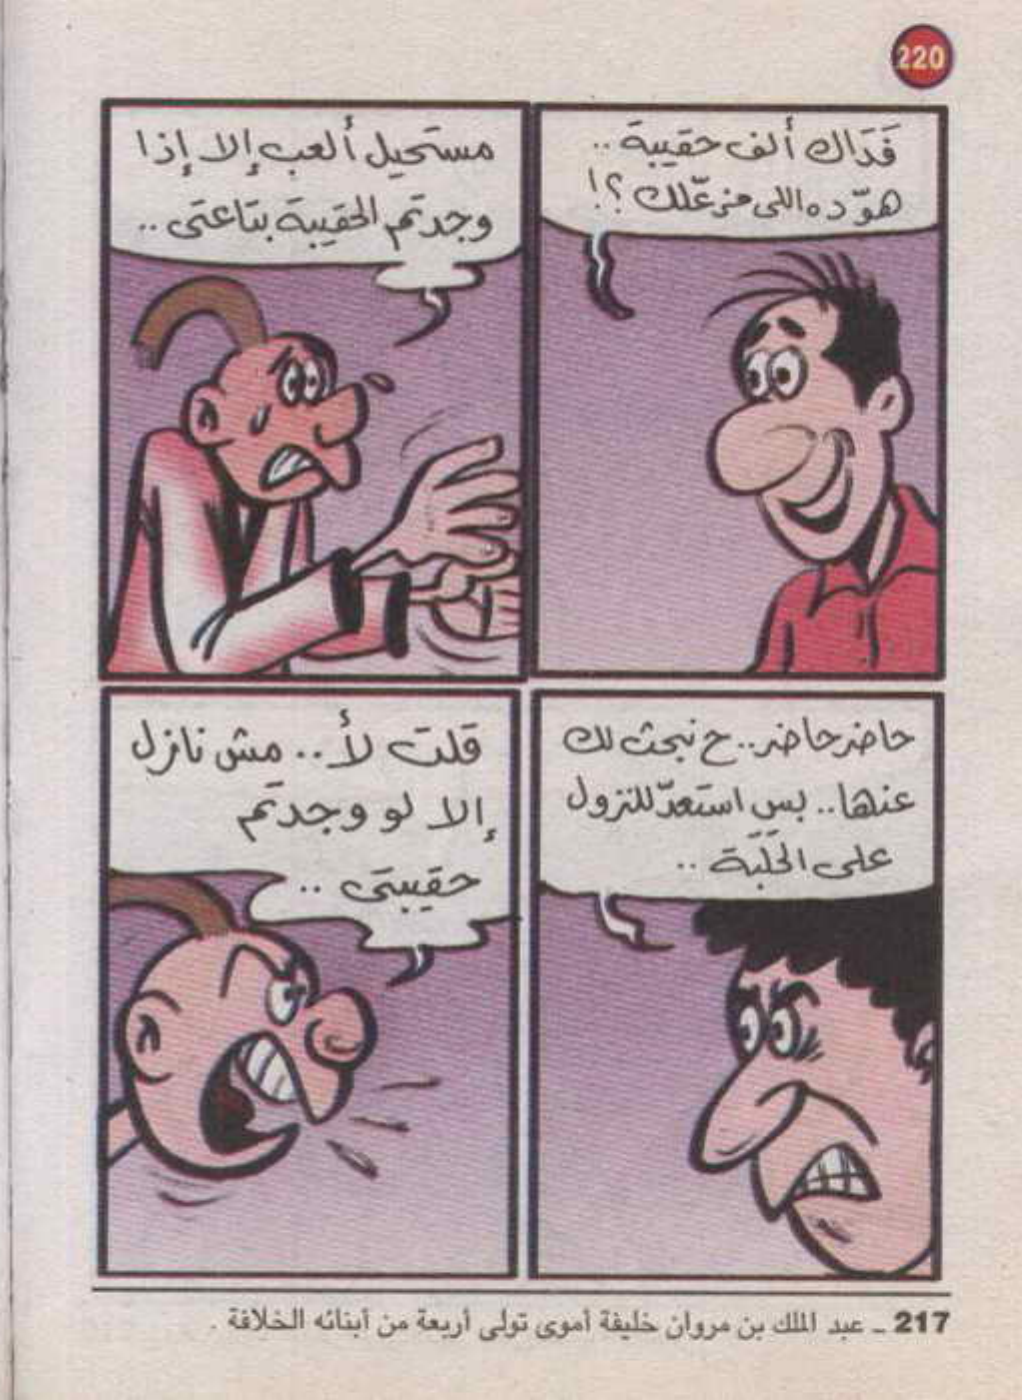 220
فَدَاك ألف حقيبة ..
هوّ ده اللى مزعّلك ؟!
مستحيل ألعب إلا إذا
وجدتم الحقيبة بتاعتى ..
حاضر حاضر .. ح نبحث لك
عنها .. بس استعدّ للنزول
على الحَلَبَة ..
قلت لأ .. مش نازل
إلا لو وجدتم
حقيبتى ..
217 ــ عبد الملك بن مروان خليفة أموى تولى أربعة من أبنائه الخلافة .